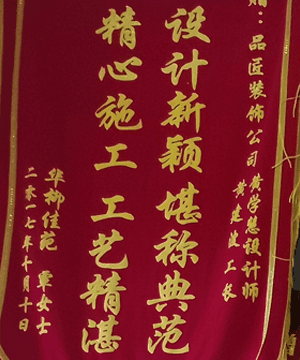 赠：品匠装饰公司黄学慧设计师
黄建波工长
设计新颖堪称典范
精心施工工艺精湛
华柳佳苑 覃女士
二零一七年十月十日